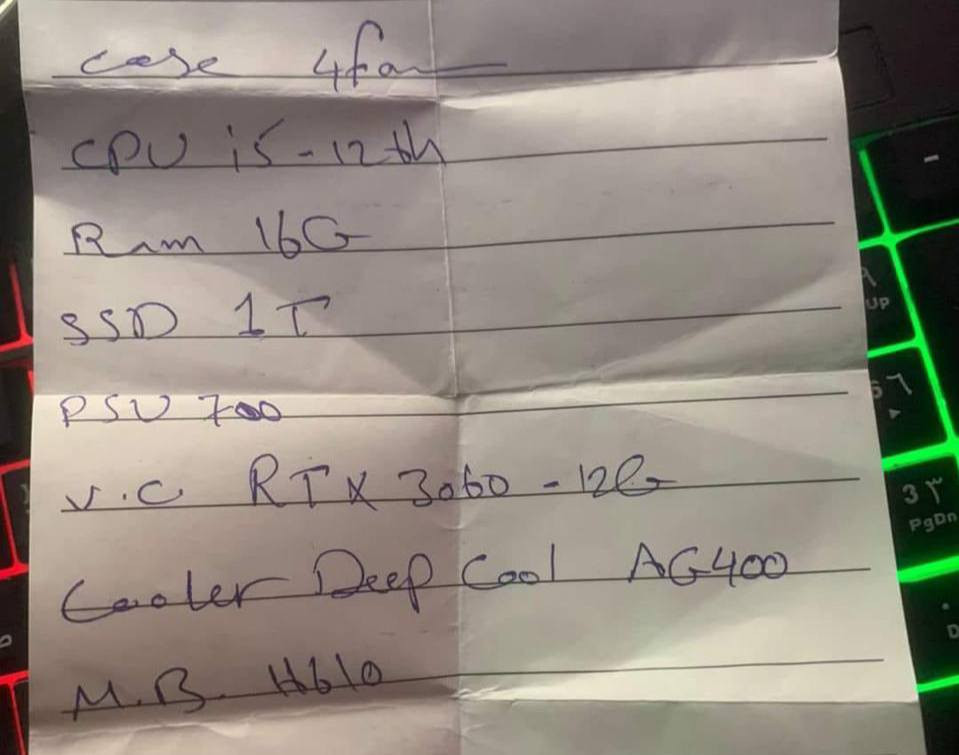 case 4fan
CPU i5-12th
Ram 16G
SSD 1T
PSU 700
V.C RTX 3060-12G
Cooler Deep Cool AG400
M.B. H610
-
UP
6 ٦
3 ٣
PgDn